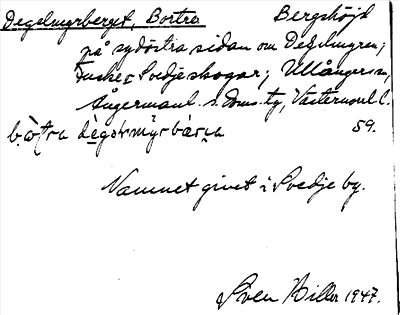 Degelmyrberget, Bortre Bergshöjd
på sydöstra sidan om Degelmyren;
Fuske o Svedje skogar; Ullånger sn,
Ångermanl. s. Doms. tg, Västernorrl. l.
59.
Namnet givet i Svedje by.
Sven Hiller 1947.